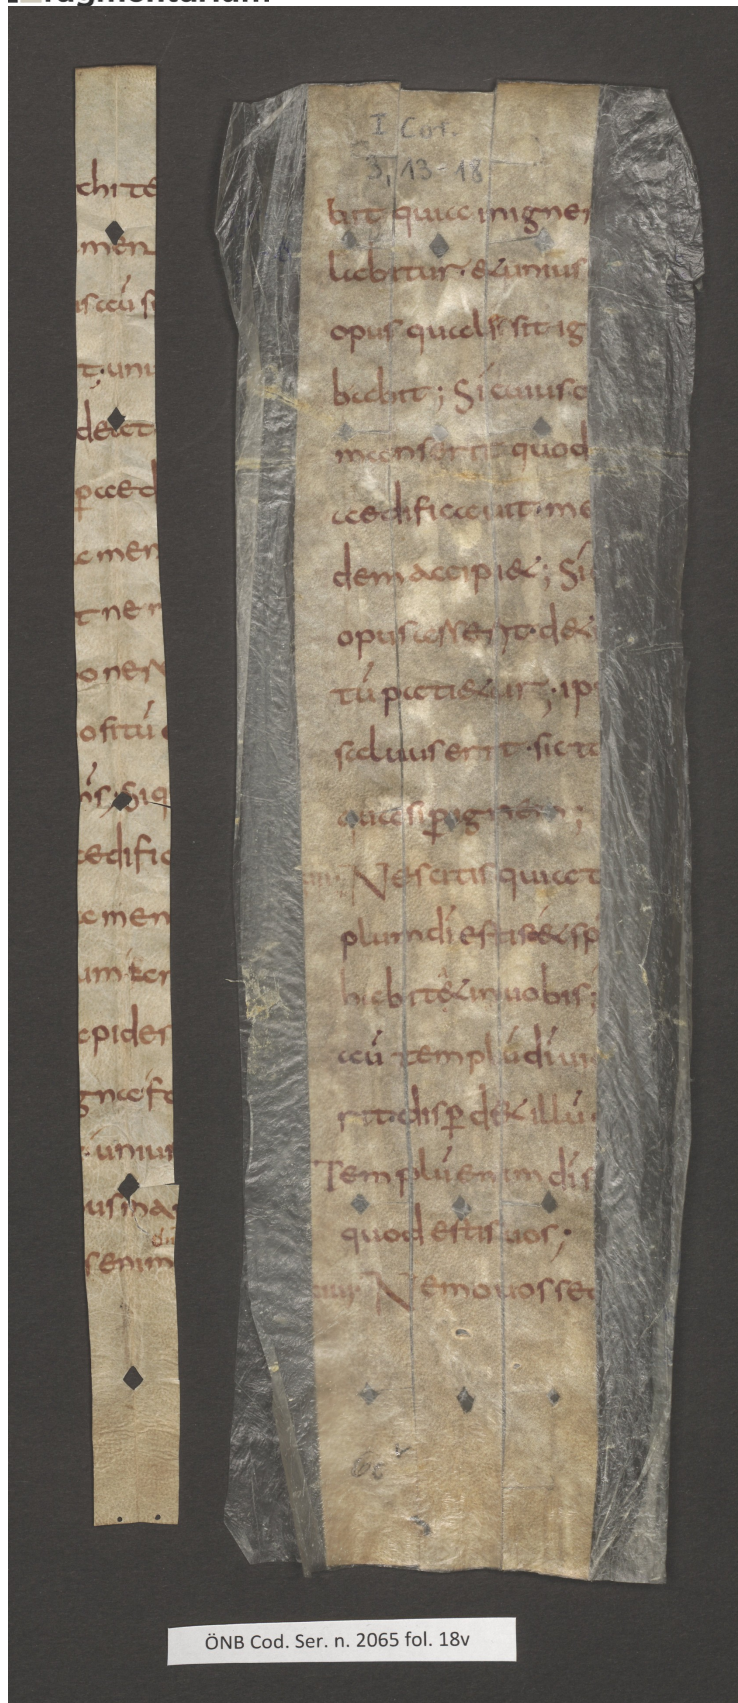 fragmentarium
chite
men
t; uni
p aced
amen
t ner
ones
ofitú
ís; Siq
aedific
amen
um &er
apides
gnaefe
unius
senim
I Cor.
3, 13-18
bit quia inigner
labitur; & unius
opus quale sit ig
babit; Si cuius o
manserit quod
aedificauit me
dem accipi&; Si
opus arserit de&
tú pati&ur; ip
saluus erit sic ta
quasi p ignem;
Nescitis quia t
plum dí estis & sp
habit& inuobis;
aú templú dí uio
rit disp d& illú
Templú enim dí s
quod estis uos;
Nemo uos se
ÖNB Cod. Ser. n. 2065 fol. 18v